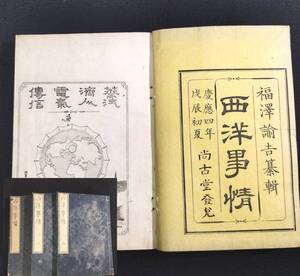 福澤諭吉纂輯
西洋事情
慶應四年
戊辰初夏
尚古堂發兌
蒸汽
濟人
電氣
傳信